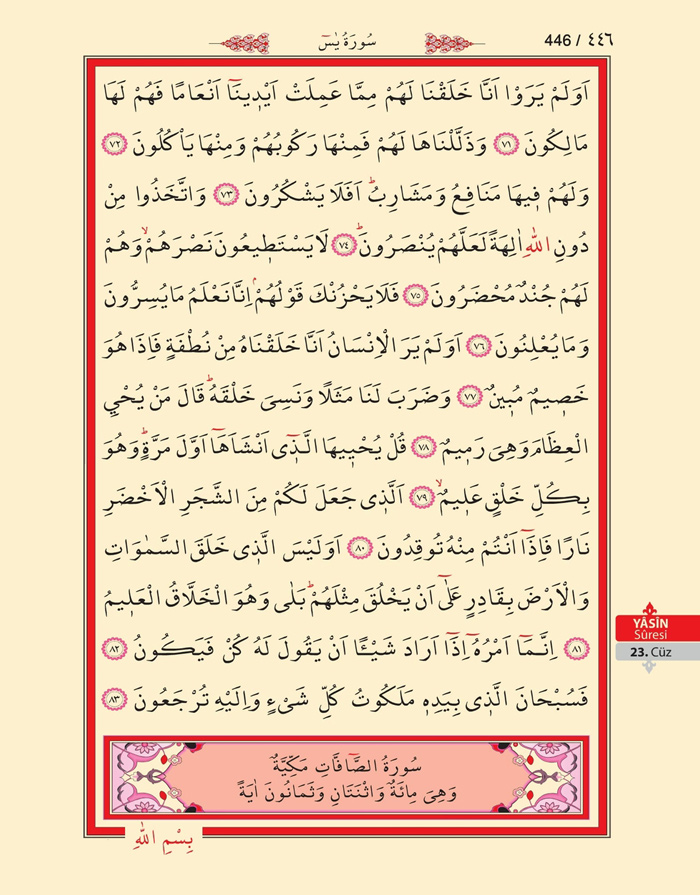 446 / ٤٤٦
سُورَةُ يٰسٓ
اَوَلَمْ يَرَوْا اَنَّا خَلَقْنَا لَهُمْ مِمَّا عَمِلَتْ اَيْدِينَٓا اَنْعَامًا فَهُمْ لَهَا
مَالِكُونَ ﴿٧١﴾ وَذَلَّلْنَاهَا لَهُمْ فَمِنْهَا رَكُوبُهُمْ وَمِنْهَا يَأْكُلُونَ ﴿٧٢﴾
وَلَهُمْ ف۪يهَا مَنَافِعُ وَمَشَارِبُۜ اَفَلَا يَشْكُرُونَ ﴿٧٣﴾ وَاتَّخَذُوا مِنْ
دُونِ اللّٰهِ اٰلِهَةً لَعَلَّهُمْ يُنْصَرُونَۜ ﴿٧٤﴾ لَا يَسْتَط۪يعُونَ نَصْرَهُمْۙ وَهُمْ
لَهُمْ جُنْدٌ مُحْضَرُونَ ﴿٧٥﴾ فَلَا يَحْزُنْكَ قَوْلُهُمْۢ اِنَّا نَعْلَمُ مَا يُسِرُّونَ
وَمَا يُعْلِنُونَ ﴿٧٦﴾ اَوَلَمْ يَرَ الْاِنْسَانُ اَنَّا خَلَقْنَاهُ مِنْ نُطْفَةٍ فَاِذَا هُوَ
خَص۪يمٌ مُب۪ينٌ ﴿٧٧﴾ وَضَرَبَ لَنَا مَثَلًا وَنَسِيَ خَلْقَهُۜ قَالَ مَنْ يُحْيِي
الْعِظَامَ وَهِيَ رَم۪يمٌ ﴿٧٨﴾ قُلْ يُحْي۪يهَا الَّـذ۪ٓي اَنْشَاَهَٓا اَوَّلَ مَرَّةٍۜ وَهُوَ
بِكُلِّ خَلْقٍ عَل۪يمٌۙ ﴿٧٩﴾ اَلَّذ۪ي جَعَلَ لَكُمْ مِنَ الشَّجَرِ الْاَخْضَرِ
نَارًا فَاِذَٓا اَنْتُمْ مِنْهُ تُوقِدُونَ ﴿٨٠﴾ اَوَلَيْسَ الَّذ۪ي خَلَقَ السَّمٰوَاتِ
وَالْاَرْضَ بِقَادِرٍ عَلٰٓى اَنْ يَخْلُقَ مِثْلَهُمْۜ بَلٰى وَهُوَ الْخَلَّاقُ الْعَل۪يمُ
﴿٨١﴾ اِنَّـمَٓا اَمْرُهُٓ اِذَٓا اَرَادَ شَيْـًٔا اَنْ يَقُولَ لَهُ كُنْ فَيَكُونُ ﴿٨٢﴾
فَسُبْحَانَ الَّذ۪ي بِيَدِه۪ مَلَكُوتُ كُلِّ شَيْءٍ وَاِلَيْهِ تُرْجَعُونَ ﴿٨٣﴾
YÂSÎN
Sûresi
23. Cüz
سُورَةُ الصَّٓافَّاتِ مَكِّيَّةٌ
وَهِيَ مِائَةٌ وَاثْنَتَانِ وَثَمَانُونَ اٰيَةً
بِسْمِ اللّٰهِ